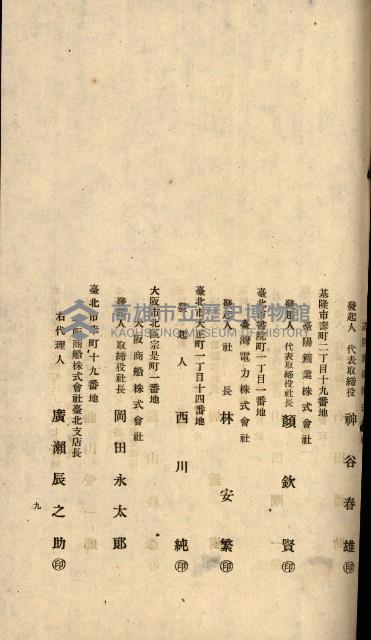 發起人 代表取締役 神谷春雄㊞
基隆市壽町二丁目十九番地
臺陽鑛業株式會社
發起人 代表取締役社長 顏欽賢㊞
臺北市書院町一丁目一番地
臺灣電力株式會社
發起人 社長 林安繁㊞
臺北市大正町一丁目十四番地
發起人 西川純㊞
大阪市北區宗是町一番地
大阪商船株式會社
發起人 取締役社長 岡田永太郎
臺北市 町十九番地
大阪商船株式會社臺北支店長
右代理人 廣瀨辰之助㊞
九
高雄市立歷史博物館
KAOHSIUNG MUSEUM OF HISTORY